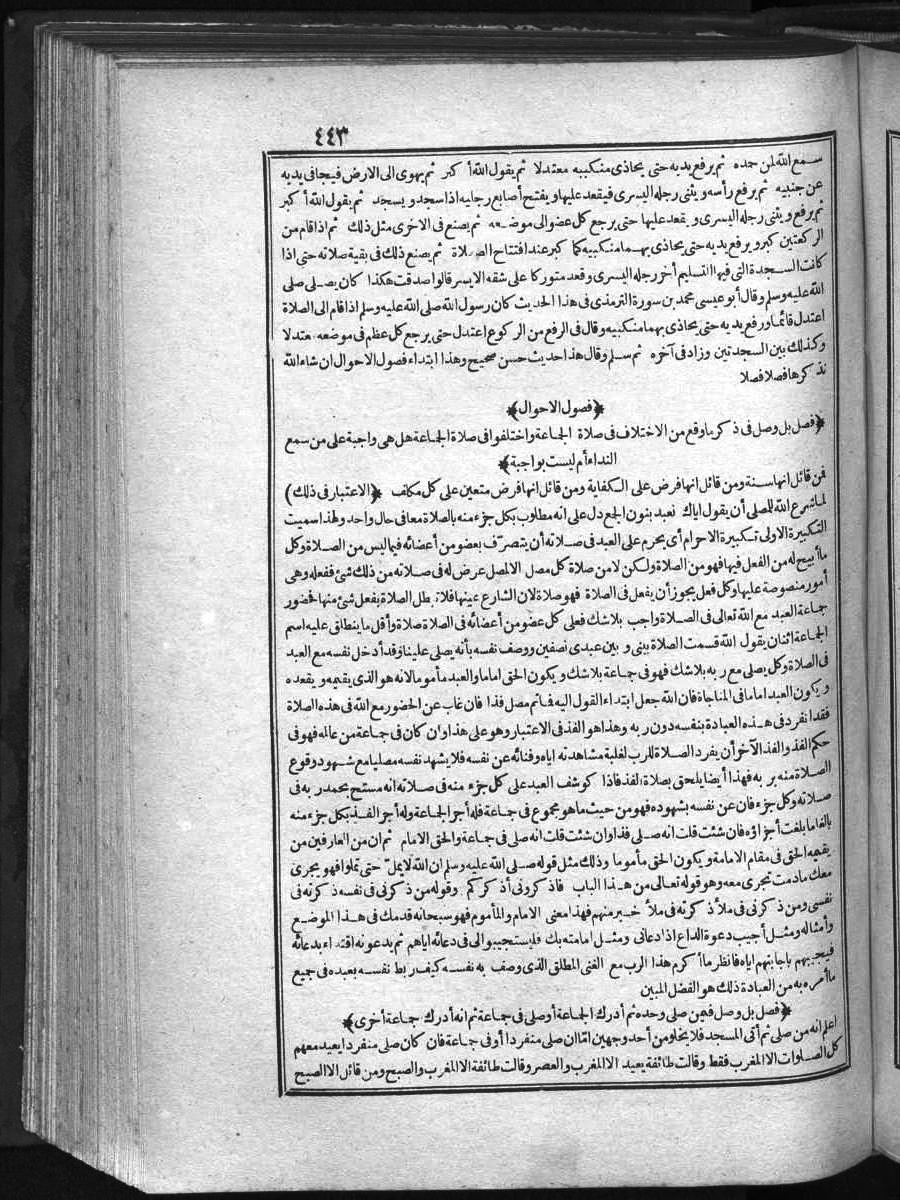 ٤٤٣
سمع الله لمن حمده ثم يرفع يديه حتى يحاذى منكبيه معتدلا ثم يقول الله أكبر ثم يهوى الى الارض فيجافى يديه
عن جنبيه ثم يرفع رأسه ويثنى رجله اليسرى فيقعد عليها ويفتح أصابع رجليه اذا سجد ويسجد ثم يقول الله أكبر
ثم يرفع ويثنى رجله اليسرى ويقعد عليها حتى يرجع كل عضو الى موضعه ثم يصنع فى الاخرى مثل ذلك ثم اذا قام من
الركعتين كبر ويرفع يديه حتى يحاذى بهما منكبيه كما كبر عند افتتاح الصلاة ثم يصنع ذلك فى بقية صلاته حتى اذا
كانت السجدة التى فيها التسليم أخر رجله اليسرى وقعد متوركا على شقه الايسر قالوا صدقت هكذا كان يصلى صلى
الله عليه وسلم وقال أبو عيسى محمد بن سورة الترمذى فى هذا الحديث كان رسول الله صلى الله عليه وسلم اذا قام الى الصلاة
اعتدل قائما ورفع يديه حتى يحاذى بهما منكبيه وقال فى الرفع من الركوع اعتدل حتى يرجع كل عظم فى موضعه معتدلا
وكذلك بين السجدتين وزاد فى آخره ثم سلم وقال هذا حديث حسن صحيح وهذا ابتداء فصول الاحوال ان شاء الله
نذكرها فصلا فصلا
﴿فصول الاحوال﴾
﴿فصل بل وصل فى ذكر ما وقع من الاختلاف فى صلاة الجماعة واختلفوا فى صلاة الجماعة هل هى واجبة على من سمع
النداء أم ليست بواجبة﴾
فمن قائل انها سنة ومن قائل انها فرض على الكفاية ومن قائل انها فرض متعين على كل مكلف ﴿الاعتبار فى ذلك﴾
لما شرع الله للمصلى أن يقول اياك نعبد بنون الجمع دل على انه مطلوب بكل جزء منه بالصلاة معا فى حال واحد ولهذا سميت
التكبيرة الاولى تكبيرة الاحرام أى يحرم على العبد فى صلاته أن يتصرّف بعضو من أعضائه فيما ليس من الصلاة وكل
ما أبيح له من الفعل فيها فهو من الصلاة ولكن لا من صلاة كل مصل الا لمصل عرض له فى صلاته من ذلك شئ ففعله وهى
أمور منصوصة عليها وكل فعل يجوز أن يفعل فى الصلاة فهو صلاة لان الشارع عينها فلا تبطل الصلاة بفعل شئ منها فحضور
جماعة العبد مع الله تعالى فى الصلاة واجب بلا شك فعلى كل عضو من أعضائه فى الصلاة صلاة وأقل ما ينطلق عليه اسم
الجماعة اثنان يقول الله قسمت الصلاة بينى وبين عبدى نصفين ووصف نفسه بأنه يصلى علينا وقد أدخل نفسه مع العبد
فى الصلاة وكل يصلى مع ربه بلا شك فهو فى جماعة بلا شك ويكون الحق اماما والعبد مأموما لانه هو الذى يقيمه ويقعده
ويكون العبد اماما فى المناجاة فان الله جعل ابتداء القول اليه فاتم مصل فذا فان غاب عن الحضور مع الله فى هذه الصلاة
فقد انفرد فى هذه العبادة بنفسه دون ربه وهذا هو الفذ فى الاعتبار وهو على هذا وان كان فى جماعة من عالمه فهو فى
حكم الفذ والفذ الآخر أن يفرد الصلاة للرب لغلبة مشاهدته اياه وفنائه عن نفسه فلا يشهد نفسه مصليا مع شهود وقوع
الصلاة منه بربه فهذا أيضا يلحق بصلاة الفذ فاذا كوشف العبد على كل جزء منه فى صلاته انه مسبح بحمد ربه فى
صلاته وكل جزء فان عن نفسه بشهوده فهو من حيث ما هو مجموع فى جماعة فله أجر الجماعة وله أجر الفذ بكل جزء منه
بالغا ما بلغت أجزاؤه فان شئت قلت انه صلى فذا وان شئت قلت انه صلى فى جماعة والحق الامام ثم ان من العارفين من
يقيمه الحق فى مقام الامامة ويكون الحق مأموما وذلك مثل قوله صلى الله عليه وسلم ان الله لا يملّ حتى تملوا فهو يجرى
معك ما دمت تجرى معه وهو قوله تعالى من هذا الباب فاذكرونى أذكركم وقوله من ذكرنى فى نفسه ذكرته فى
نفسى ومن ذكرنى فى ملأ ذكرته فى ملأ خير منهم فهذا معنى الامام والمأموم فهو سبحانه قدمك فى هذا الموضع
وأمثاله ومثل أجيب دعوة الداع اذا دعانى ومثل امامته بك فليستجيبوا لى فى دعائه اياهم ثم يدعونه اقتداء بدعائه
فيجيبهم باجابتهم اياه فانظر ما أكرم هذا الرب مع الغنى المطلق الذى وصف به نفسه كيف ربط نفسه بعبده فى جميع
ما أمره به من العبادة ذلك هو الفضل المبين
﴿فصل بل وصل فيمن صلى وحده ثم أدرك الجماعة أو صلى فى جماعة ثم انه أدرك جماعة أخرى﴾
اعلم انه من صلى ثم أتى المسجد فلا يخلو من أحد وجهين امّا ان صلى منفردا أو فى جماعة فان كان صلى منفردا يعيد معهم
كل الصلوات الا المغرب فقط وقالت طائفة يعيد الا المغرب والعصر وقالت طائفة الا المغرب والصبح ومن قائل الا الصبح